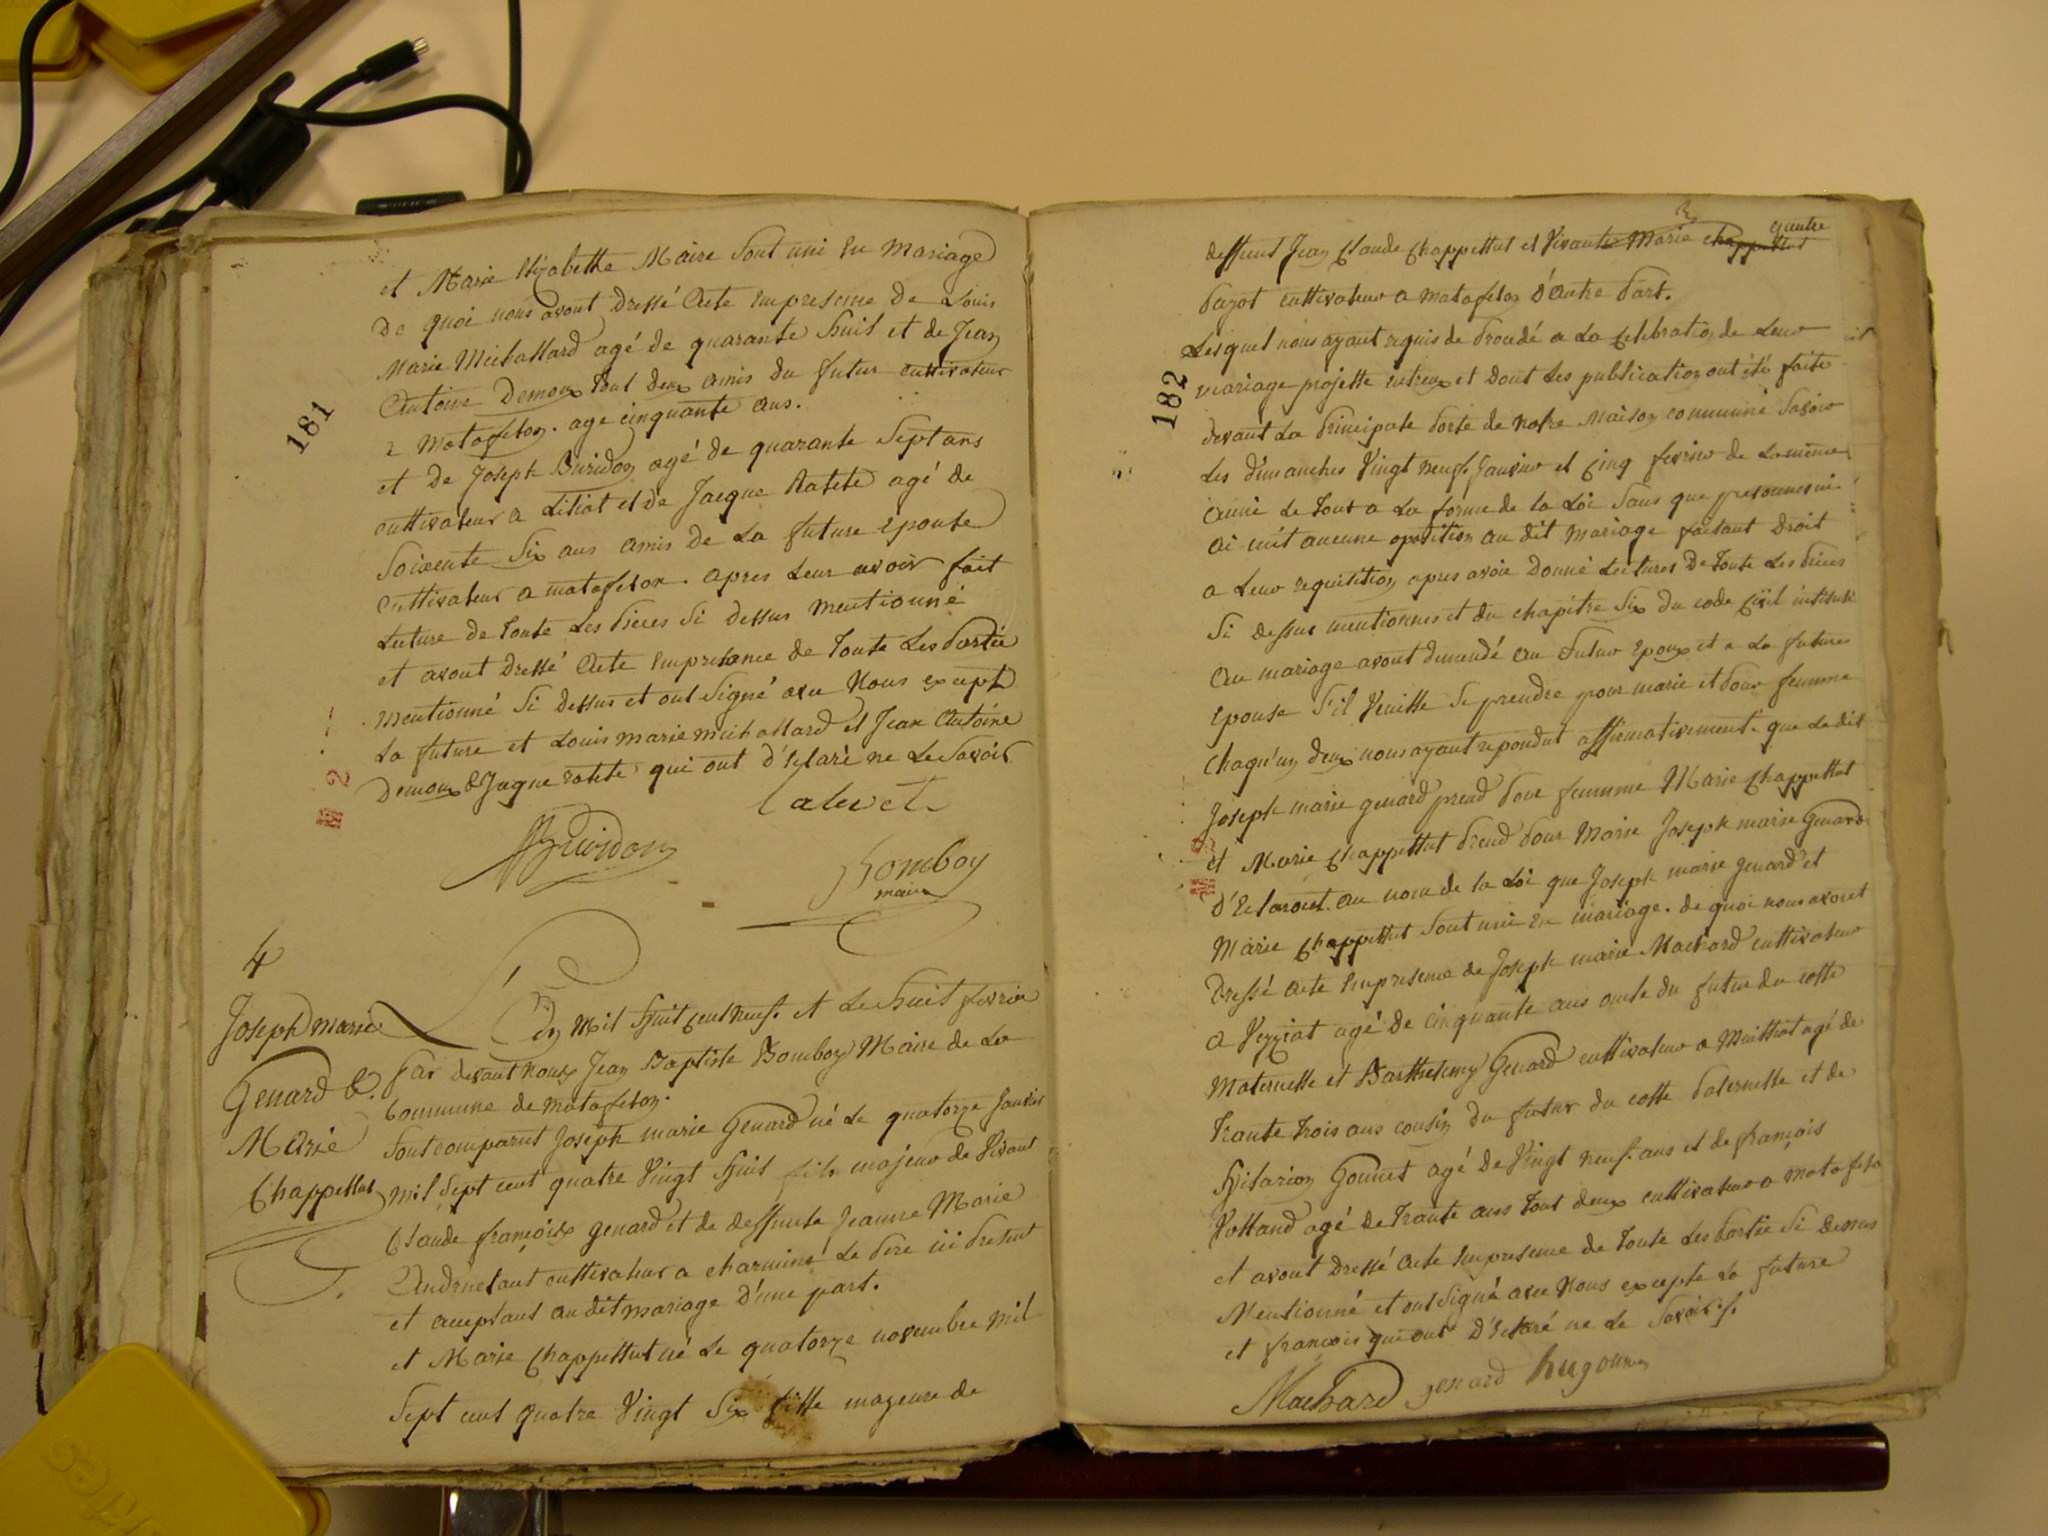 et Marie Elizabethe Maire Sont uni En Mariage
De quoi nous avont Dressé Acte Empresence De Louis
Marie Michallard agé de quarante huit et de Jean
Antoine Demoux tout deux amis du futur cultivateur
a Matafelon. age cinquante ans.
et De Joseph Buridon agé de quarante Sept ans
cultivateur a Liliat et de Jacque Ratete agé de
Soixente Six ans amis de La future Epouse
Cultivateur a matafelon. apres Leur avoir fait
Lecture de toute Les pieces Si dessus mentionné
et avont Dressé Acte Empresence de toute Les partie
mentionné Si dessus et ont Signé avec Nous except
La future et Louis marie michallard et Jean Antoine
Demoux & Jaque ratete qui ont d'Eclaré ne Le Savoir
181
JBuridon
Bomboy
maire
4
Joseph marie
Genard &
Marie
Chappellut
En Mil huit cent neuf. et Le huit fevrier
par devant nous Jean Baptiste Bomboy Maire de La
Commune de matafelon.
Sont comparut Joseph marie Genard né Le quatorze Janvier
mil Sept cent quatre Vingt huit fils majeur de Vivant
Claude françoix genard et de deffunte Jeanne Marie
cultivateur a charmine Le pere ici présent
et acceptant au dit mariage D'une part.
et Marie Chappellut né Le quatorze novembre mil
Sept cent quatre Vingt Six fille mageure de
182
deffunt Jean Claude Chappellut et Vivante Marie chappellut
pazot cultivateur a matafelon d'Autre part.
Lesquel nous ayant requis de procedé a La Celebration de Leur
mariage projetté entreux et Dont Les publication ont été faite
devant La principale porte de notre Maison commune Savoir
Les dimanches Vingt neuf Janvier et Cinq fevrier de La même
année Le tout a La forme de la Loi Sans que personnes ni
ai mit aucune oposition au dit mariage faisant Droit
a Leur requisition apres avoir Donné Lectures De toute Les pieces
Si dessus mentionnes et du chapitre Six du code Civil intitulé
Au mariage avont demandé au futur Epoux et a La future
Epouse S'il Veuille Se prendre pour marie et pour femme
Chaqu'un deux nous ayant repondut affirmativement. que Le dit
Joseph marie genard prend pour femme Marie Chappellut
et Marie Chappellut prend pour Marie Joseph marie Genard
d'Eclaront. au nom de la Loi que Joseph marie genard et
Marie Chappellut Sont uni En mariage. de quoi nous avont
Dressé acte Empresence de Joseph marie Machard cultivateur
a Veyziat agé de cinquante ans oncle du futur du cotté
Maternelle et Barthelemy Genard cultivateur a agé de
trante trois ans cousin du futur du cotté paternelle et de
Hilarion Gounet agé de Vingt neuf. ans et de françois
Volland agé de trante ans tout deux cultivateur a matafelo
et avont Dressé Acte Empresence de toute Les partie Si dessus
Mentionné et ont Signé avec Nous excepte La future
et françois qui ont D'Eclaré ne Le Savoir.
Machard genard